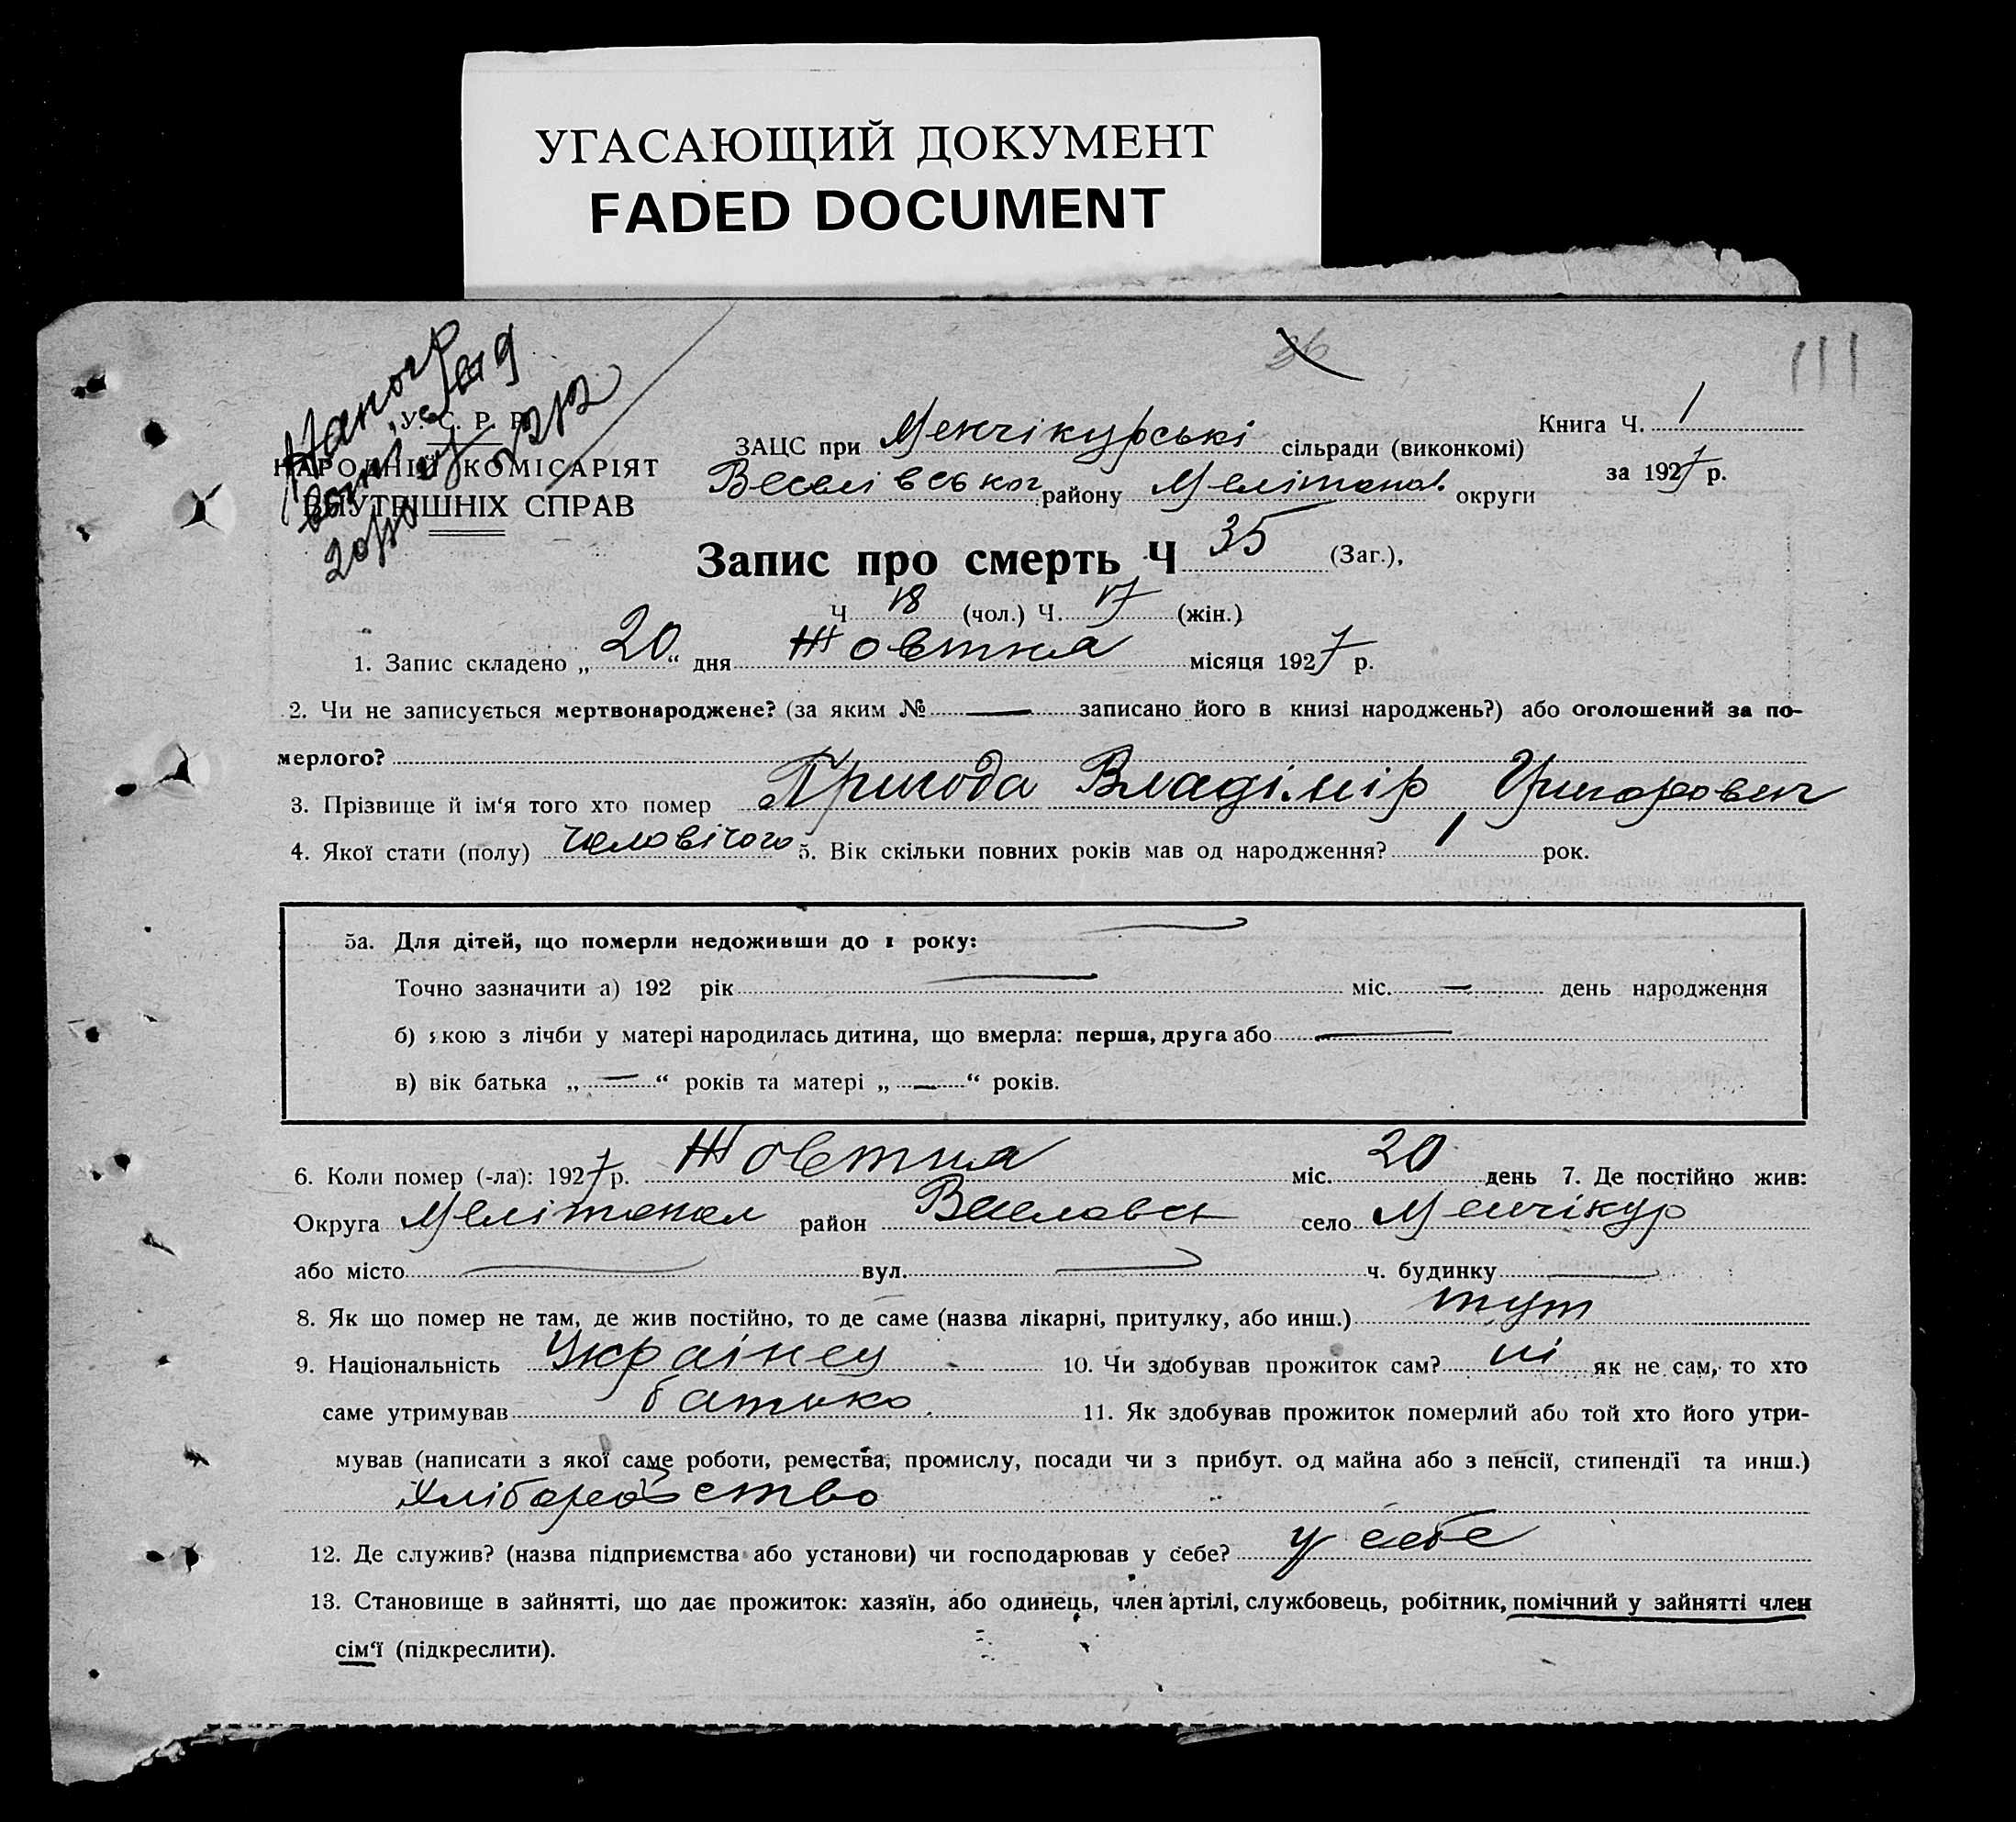 УГАСАЮЩИЙ ДОКУМЕНТ
FADED DOCUMENT
111
36
У. С. Р. Р.
НАРОДНІЙ КОМІСАРІЯТ
ВНУТРІШНІХ СПРАВ
Книга Ч. 1
за 1927 р.
ЗАЦС при Менчікурські сільради (виконкомі)
Веселівськог району Мелітопол. округи
Запис про смерть Ч 35 (Заг.),
Ч 18 (чол.) Ч. 17 (жін.)
1. Запис складено „ 20 “ дня Жовтня місяця 1927 р.
2. Чи не записується мертвонароджене? (за яким № — записано його в книзі народжень?) або оголошений за по-
мерлого?
3. Прізвище й ім‘я того хто помер Пригода Владімір Григорович
4. Якої стати (полу) Чоловічого 5. Вік скільки повних років мав од народження? 1 рок.
5а. Для дітей, що померли недоживши до 1 року:
Точно зазначити а) 192 рік — міс. — день народження
б) якою з лічби у матері народилась дитина, що вмерла: перша, друга або —
в) вік батька „ — “ років та матері „ — “ років.
6. Коли помер (-ла): 1927 р. Жовтня міс. 20 день 7. Де постійно жив:
Округа Мелітопол район Веселовск село Менчікур
або місто — вул. — ч. будинку —
8. Як що помер не там, де жив постійно, то де саме (назва лікарні, притулку, або инш.) тут
9. Національність Українец 10. Чи здобував прожиток сам? ні як не сам, то хто
саме утримував батько. 11. Як здобував прожиток померлий або той хто його утри-
мував (написати з якої саме роботи, ремества, промислу, посади чи з прибут. од майна або з пенсії, стипендії та инш.)
Хліборобство
12. Де служив? (назва підприємства або установи) чи господарював у себе? у себе
13. Становище в зайнятті, що дає прожиток: хазяїн, або одинець, член артілі, службовець, робітник, помічний у зайнятті член
сім‘ї (підкреслити).